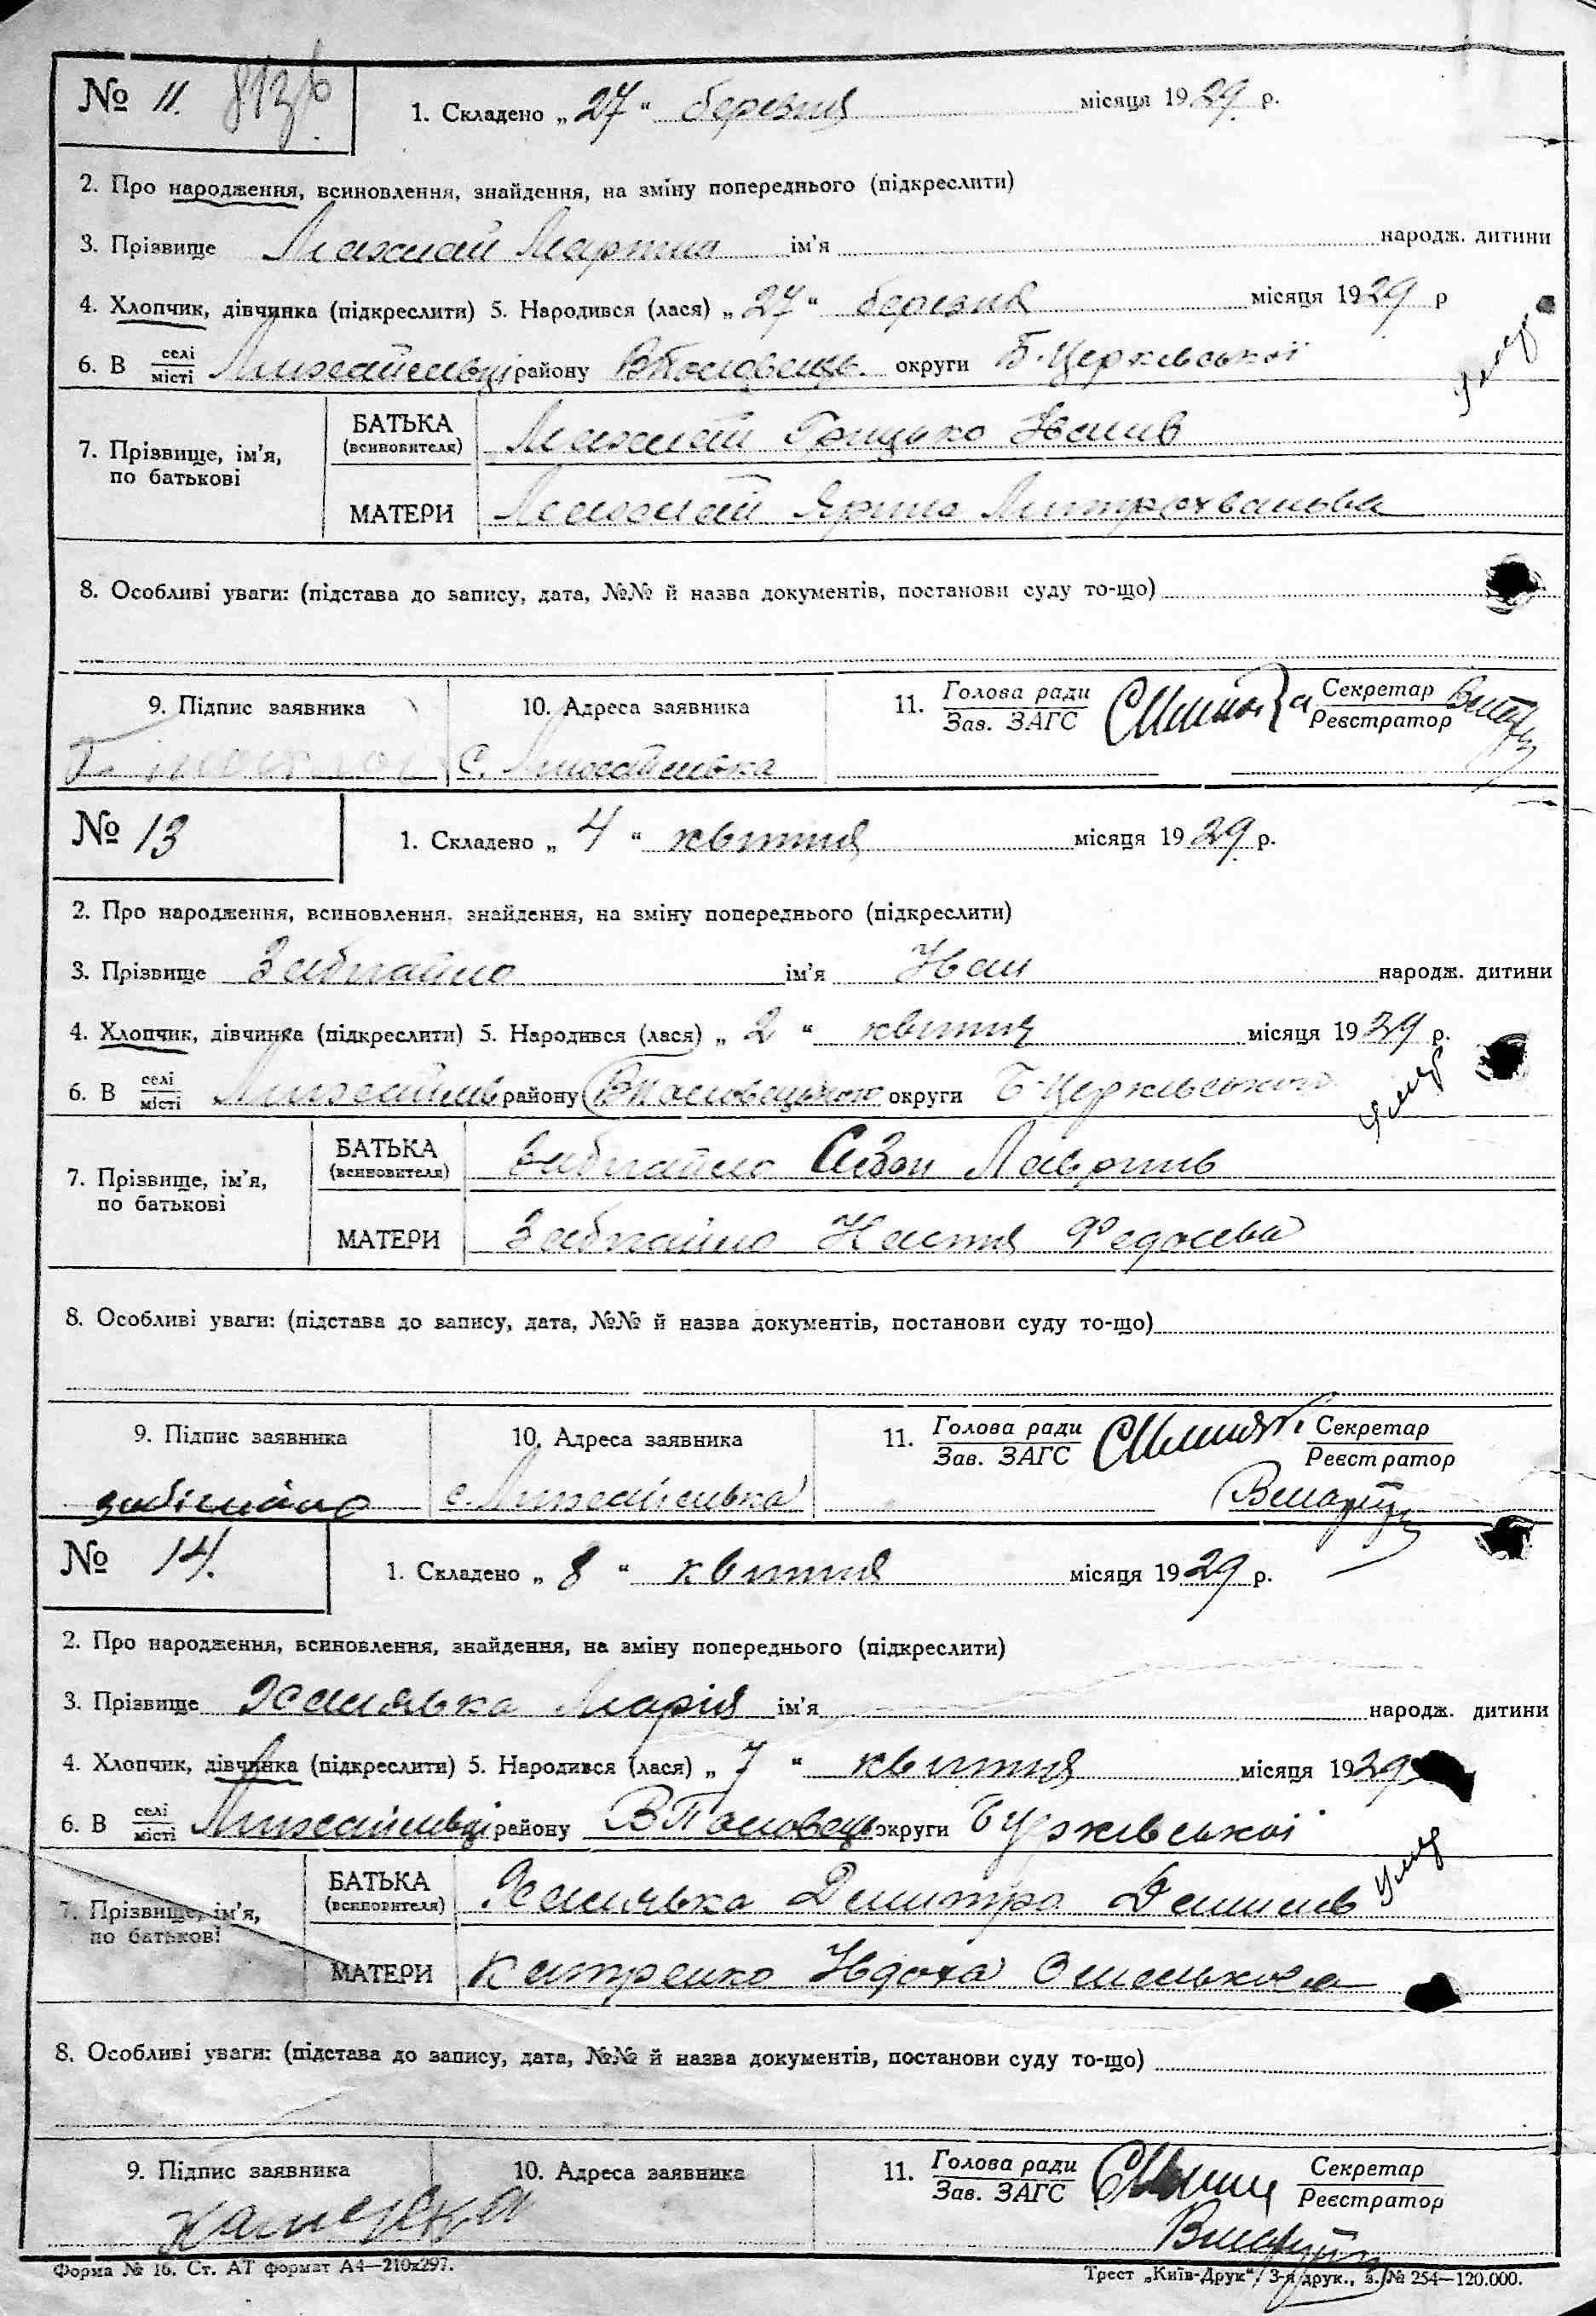 № 11. 1. Складено „ 27 “ березня місяця 1929 р.
2. Про народження, всиновлення, знайдення, на зміну попереднього (підкреслити)
3. Прізвище Мажнай Мартин ім'я народж. дитини
4. Хлопчик, дівчинка (підкреслити) 5. Народився (лася) „ 27 “ березня місяця 1929 р
6. В селі місті Михайлівці району ВПоловець. округи Б-Церківської
БАТЬКА (всиновителя) Мажнай Грицько Іванів
7. Прізвище, ім'я, по батькові
МАТЕРИ Мажнай Ярина Митрохванова
8. Особливі уваги: (підстава до запису, дата, №№ й назва документів, постанови суду то-що)
9. Підпис заявника 10. Адреса заявника 11. Голова ради Зав. ЗАГС Секретар Реєстратор
с. Михайлівка
№ 13 1. Складено „ 4 “ квітня місяця 1929 р.
2. Про народження, всиновлення, знайдення, на зміну попереднього (підкреслити)
3. Прізвище Забігайло ім'я Іван народж. дитини
4. Хлопчик, дівчинка (підкреслити) 5. Народився (лася) „ 2 “ квітня місяця 1929 р.
6. В селі місті Михайлів району ВПоловецького округи Б-Церківської
умер
БАТЬКА (всиновителя) Забігайло Сазон Лавринів
7. Прізвище, ім'я, по батькові
МАТЕРИ Забігайло Настя Федосева
8. Особливі уваги: (підстава до запису, дата, №№ й назва документів, постанови суду то-що)
9. Підпис заявника 10. Адреса заявника 11. Голова ради Зав. ЗАГС Секретар Реєстратор
забігайло с. Михайлівка
№ 14. 1. Складено „ 8 “ квітня місяця 1929 р.
2. Про народження, всиновлення, знайдення, на зміну попереднього (підкреслити)
3. Прізвище Халявка Марія ім'я народж. дитини
4. Хлопчик, дівчинка (підкреслити) 5. Народився (лася) „ 7 “ квітня місяця 1929
6. В селі місті Михайлівці району ВПоловець округи БЦерківської
умер
БАТЬКА (всиновителя) Халявка Дмитро Демидів
7. Прізвище, ім'я, по батькові
МАТЕРИ Катренко Ївдоха Омелькова
8. Особливі уваги: (підстава до запису, дата, №№ й назва документів, постанови суду то-що)
9. Підпис заявника 10. Адреса заявника 11. Голова ради Зав. ЗАГС Секретар Реєстратор
Форма № 16. Ст. АТ формат А4—210x297. Трест „Київ-Друк“, 3-я друк., з. № 254—120.000.